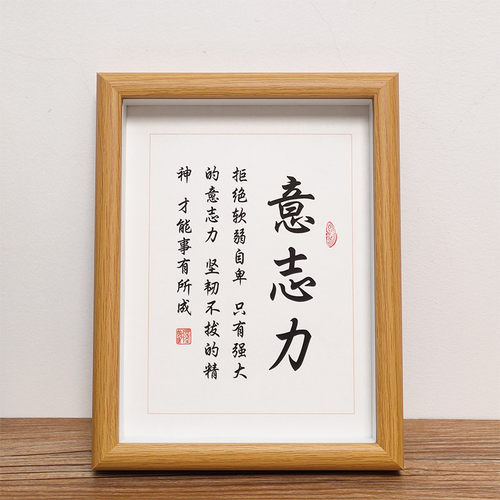 意志力
拒绝软弱自卑 只有强大
的意志力 坚韧不拔的精
神 才能事有所成